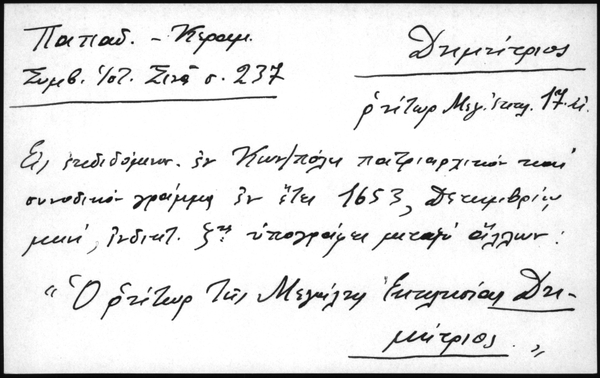 Παπαδ. – Κεραμ.
Συμβ. Ἱστ. Σινᾶ σ. 237
Δημήτριος
ῥήτωρ Μεγ. Ἐκκλ. 17. αἰ.
Εἰς ἐκδιδόμεν. ἐν Κων/πόλει πατριαρχικόν καί
συνοδικόν γράμμα ἐν ἔτει 1653, Δεκεμβρίῳ
μηνί, ἰνδικτ. ζῃ ὑπογράφει μεταξύ ἄλλων:
"Ὁ ῥήτωρ τῆς Μεγάλης Ἐκκλησίας Δη-
μήτριος."